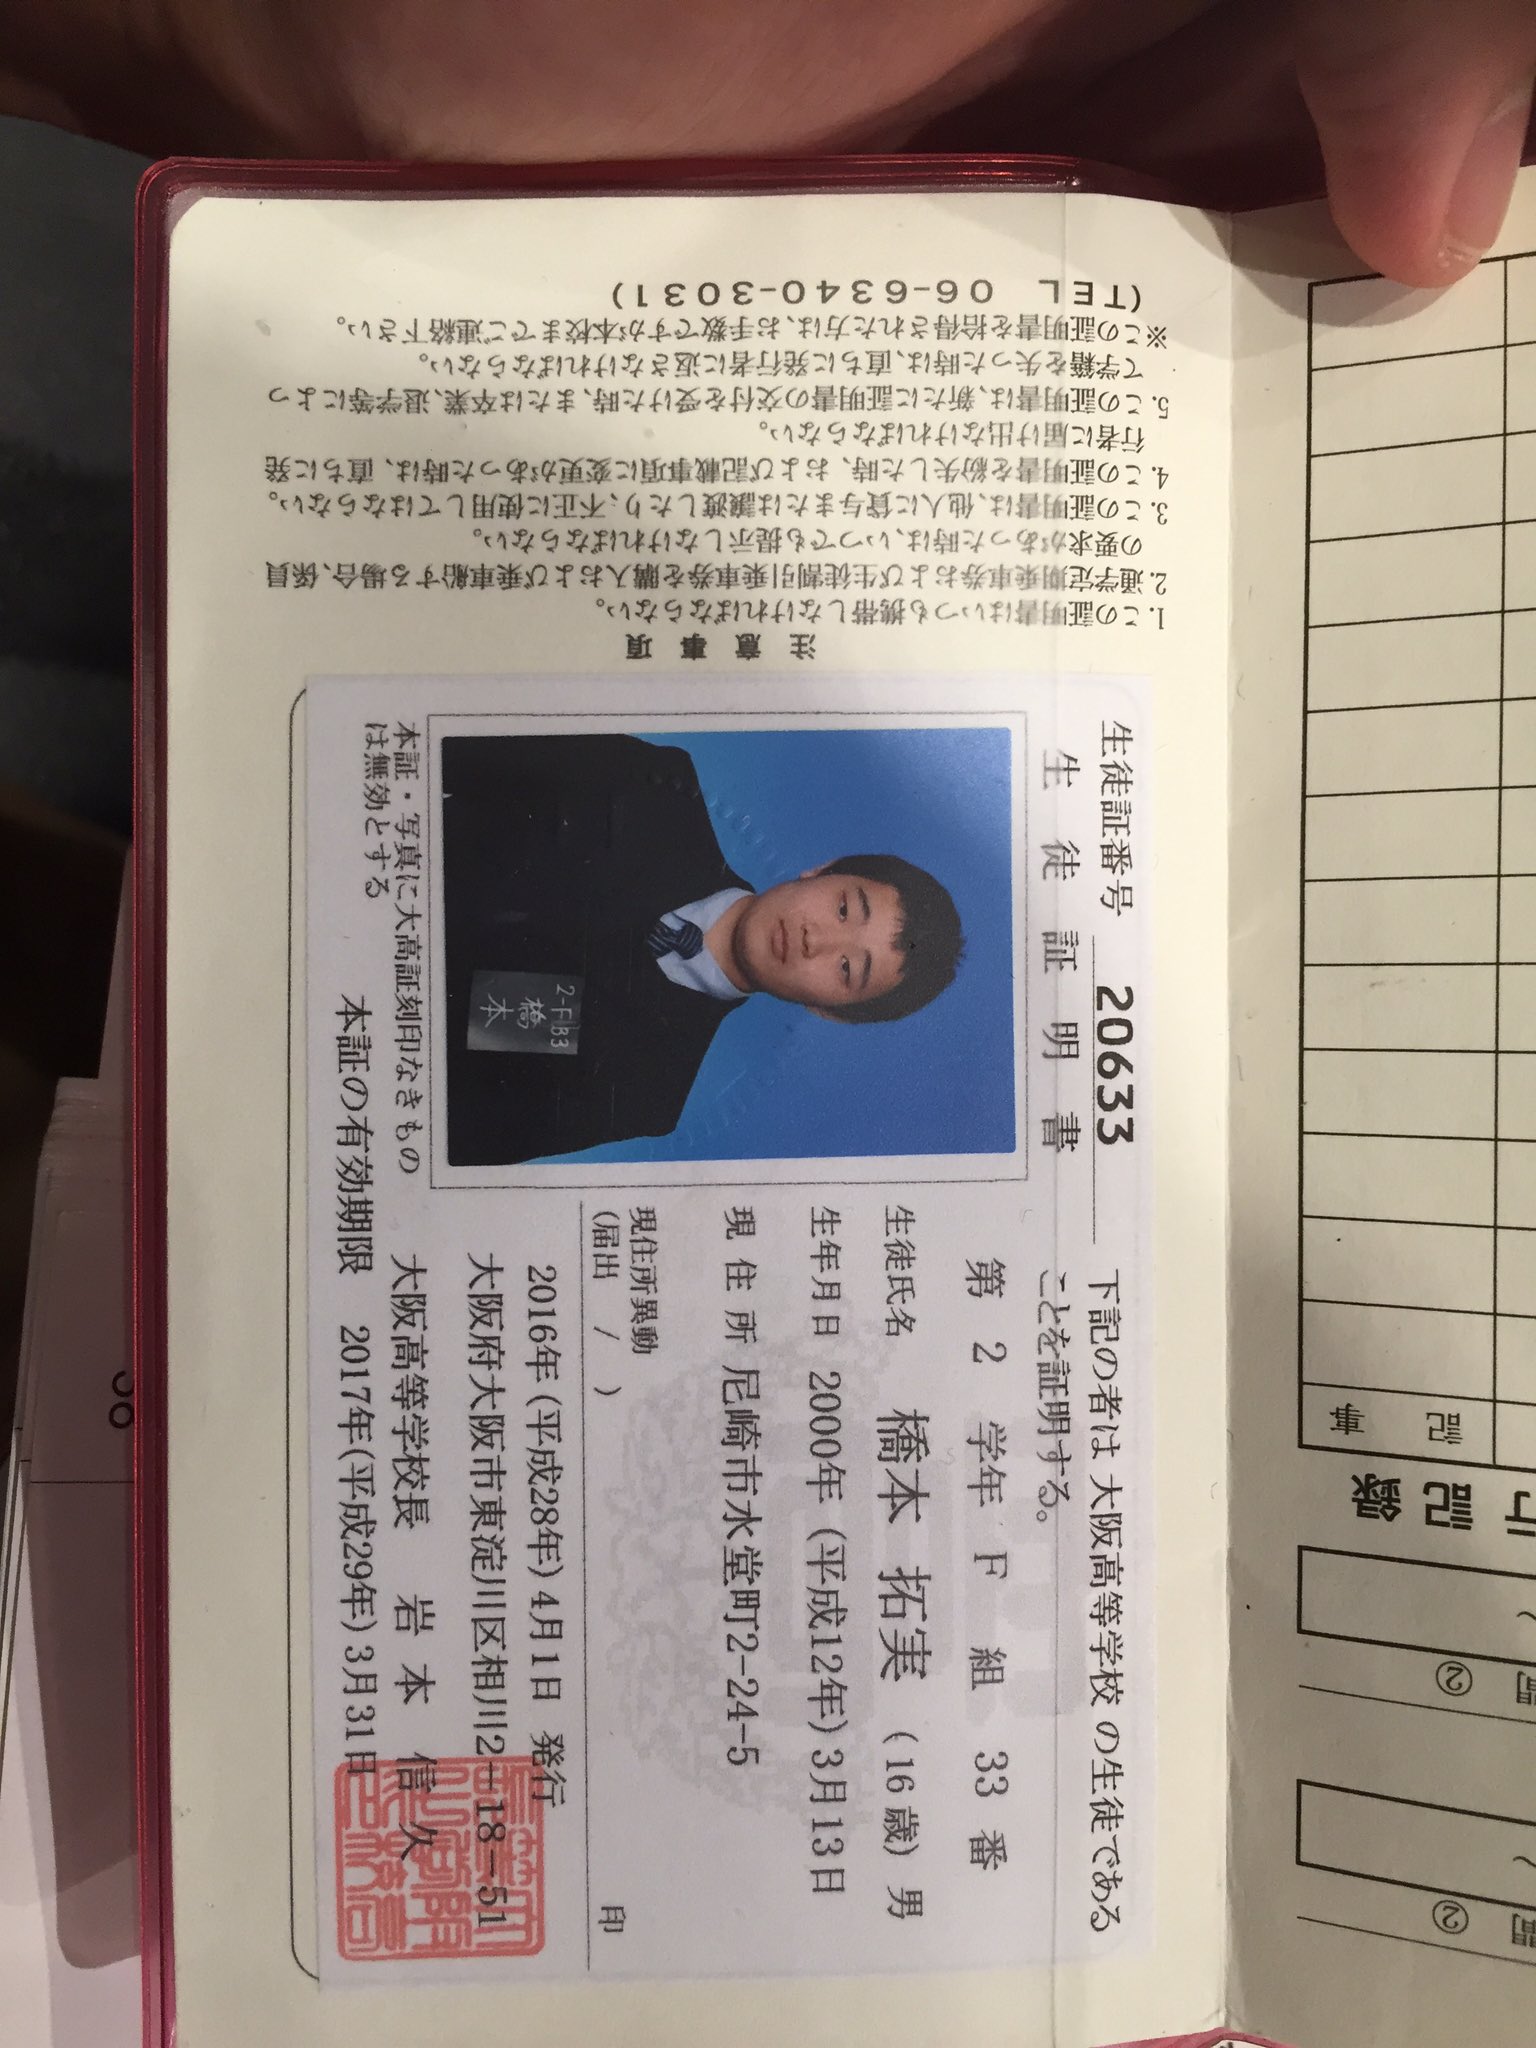 生徒証番号 20633
生徒証明書
2-F 33
橋本
本証・写真に大高証刻印なきもの
は無効とする
下記の者は 大阪高等学校 の生徒である
ことを証明する。
第 2 学年 F 組 33 番
生徒氏名 橋本 拓実 (16歳) 男
生年月日 2000年 (平成12年) 3月13日
現住所 尼崎市水堂町2-24-5
現住所異動
(届出 / ) 印
2016年 (平成28年) 4月1日 発行
大阪府大阪市東淀川区相川2-18-51
大阪高等学校長 岩本 信久
本証の有効期限 2017年(平成29年) 3月31日
注意事項
1.この証明書はいつも携帯しなければならない。
2.通学定期乗車券および生徒割引乗車券を購入および乗車船する場合、係員
の要求があった時は、いつでも提示しなければならない。
3.この証明書は、他人に貸与または譲渡したり、不正に使用してはならない。
4.この証明書を紛失した時、および記載事項に変更があった時は、直ちに発
行者に届け出なければならない。
5.この証明書は、新たに証明書の交付を受けた時、または卒業、退学等によっ
て学籍を失った時は、直ちに発行者に返さなければならない。
※この証明書を拾得された方は、お手数ですが本校までご連絡下さい。
(TEL 06-6340-3031)
記録
記
事
②
②